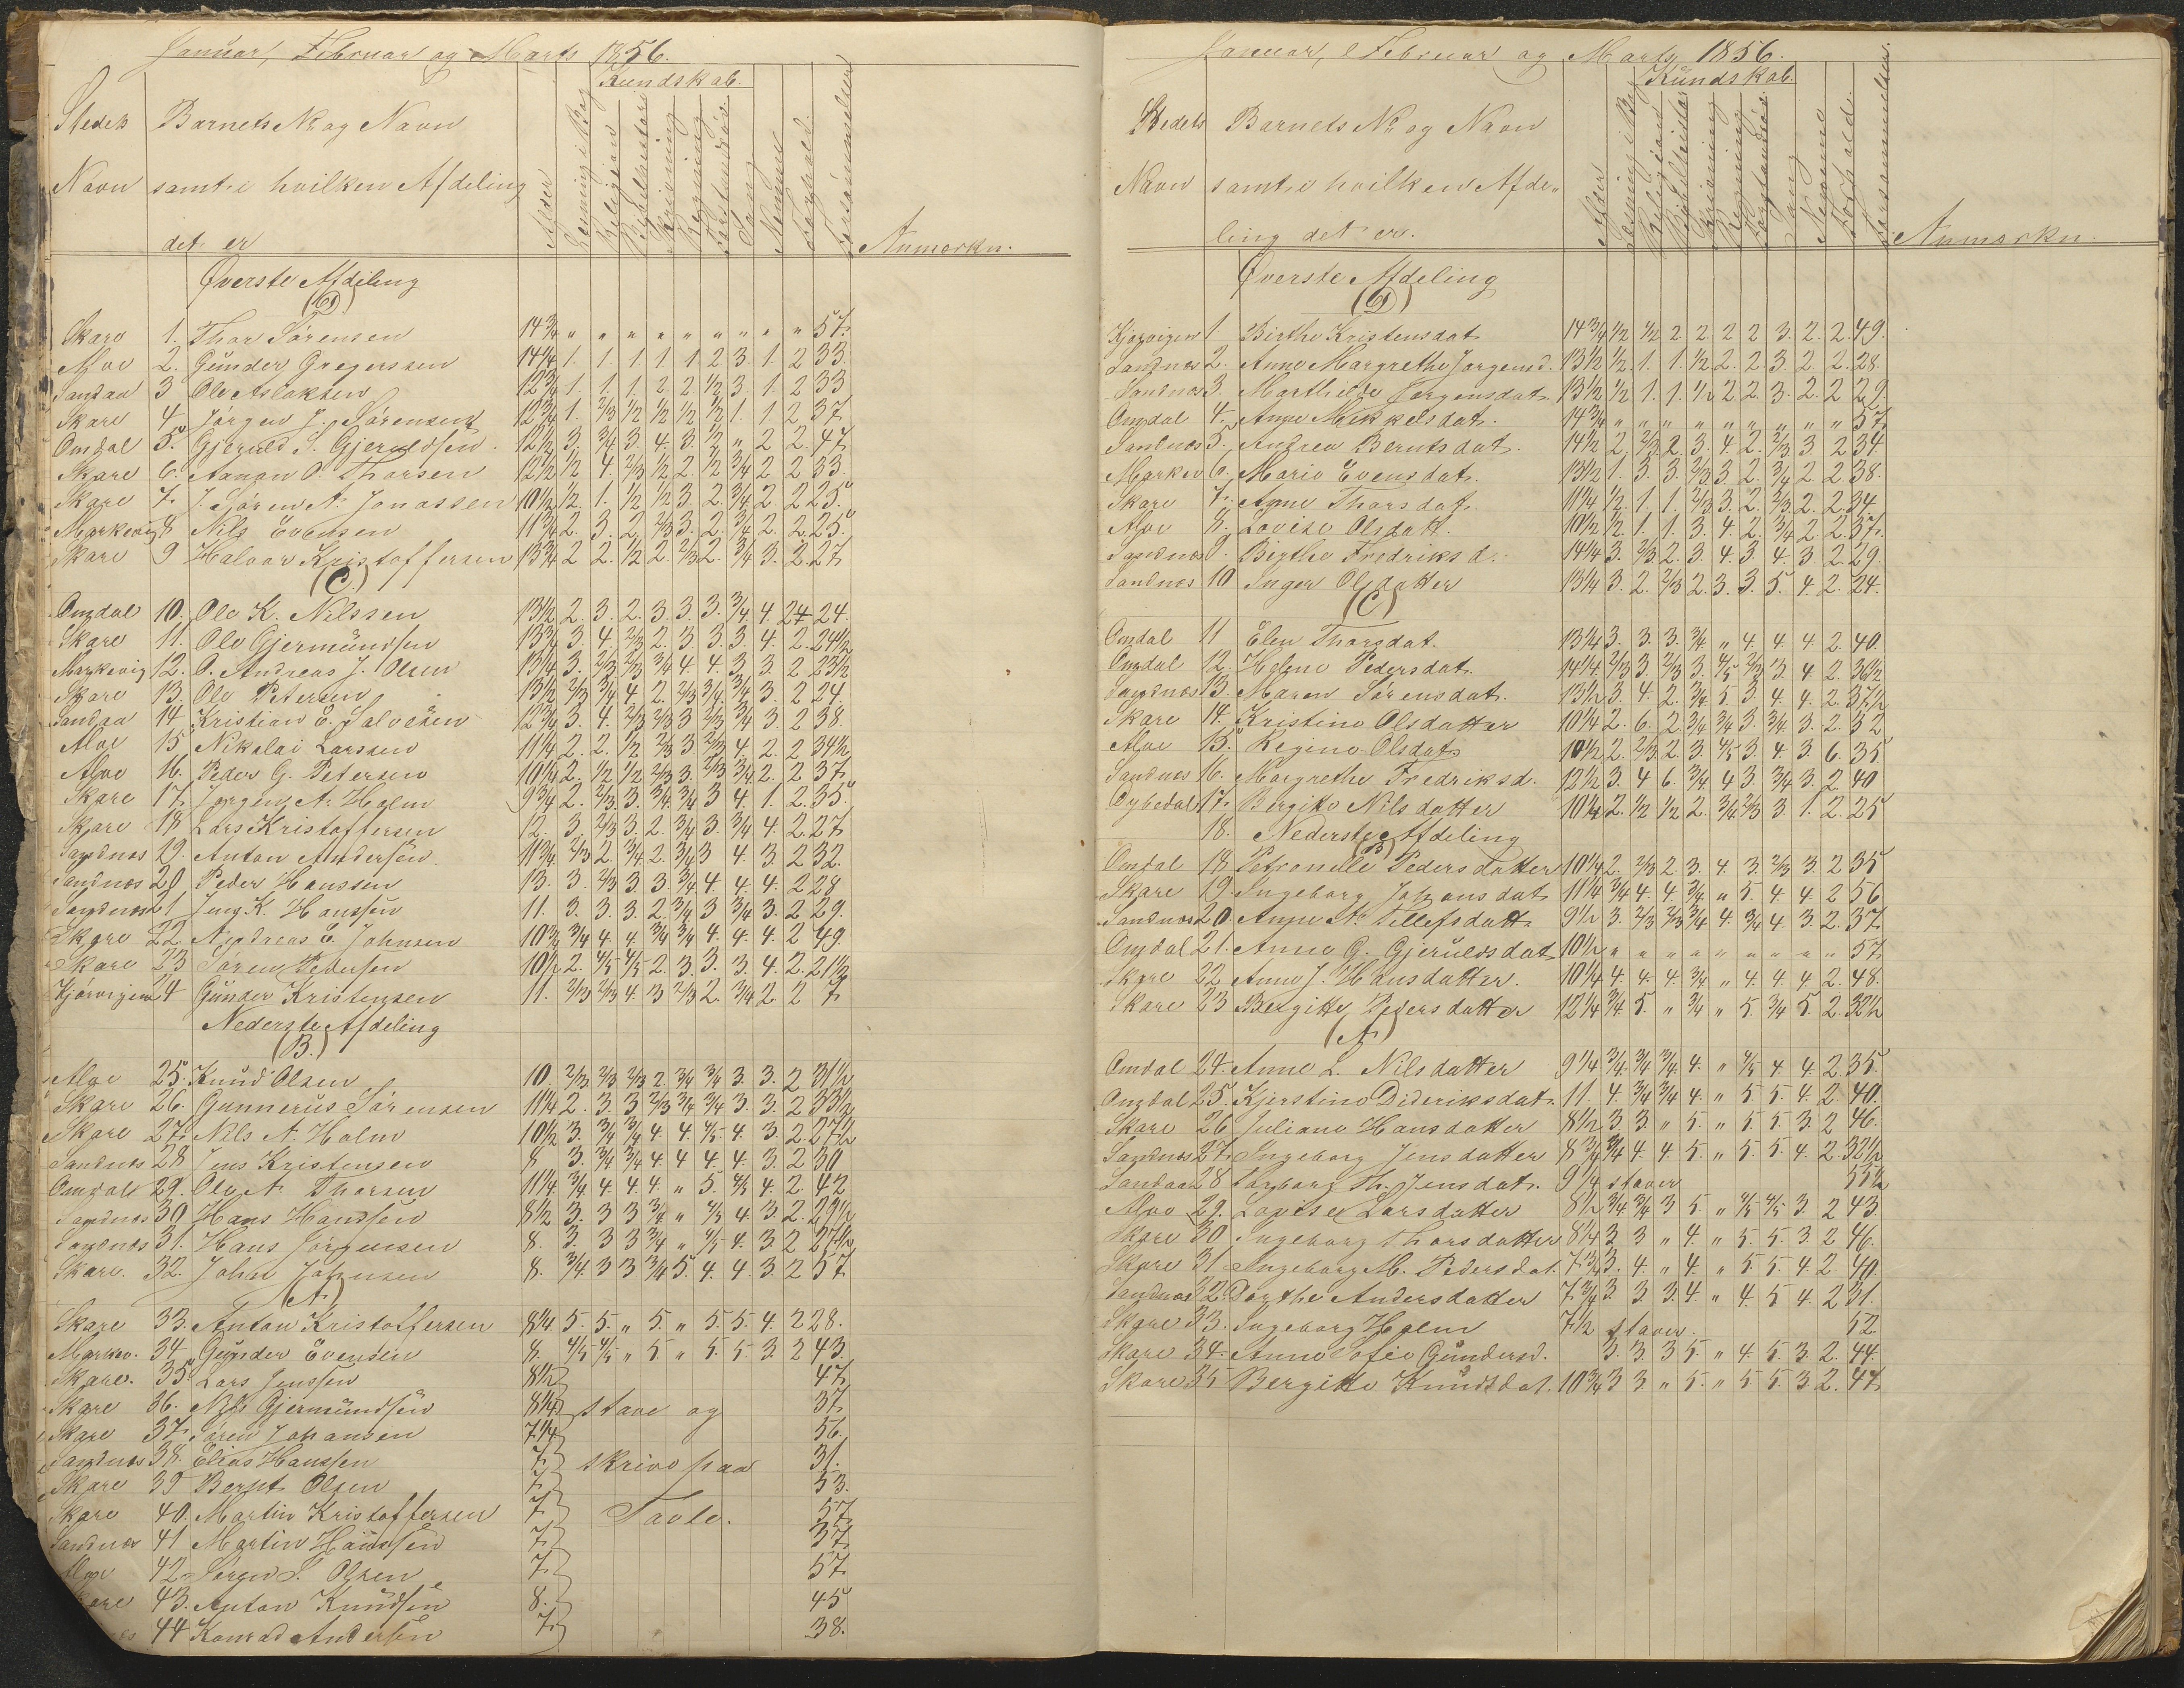 Januar, Februar og Marts 1856.
Kundskab.
Stedets Barnets No og Navn
Navn samt i hvilken Afdeling
det er
Alder Læsning i Bog Religion Bibelhistorie Skrivning Regning Sang Nemme Forhold. Forsømmelser Anmærkn.
Øverste Afdeling
(D)
Skare 1. Thor Sørensen 14 3/4 " " " " " " " " " 57.
Aloe 2. Gunder Gregersen 14 1/4 1. 1 1 1. 1 2 3. 1. 2 33.
Sandaa 3 Ole Aslaksen 12 3/4 1. 1. 1. 2. 2 1/2 3. 1. 2 33
Skare 4. Jørgen J. Sørensen 12 3/4 1. 2/3 1/2 1/2 1/2 1/2 1. 1 2 37.
Omdal 5. Gjeruld S. Gjeruldsen. 12 1/2 3. 3/4 3. 4. 3. 1/2 " 2 2. 47
Skare 6. Aanon O. Thorsen 12 1/2 1/2 4. 2/3 1/2 2. 1/2 3/4 2 2 33.
Skare 7. J. Søren A. Jonassen 10 1/2 1/2. 1. 1/2 1/2 3 2 3/4 2 2 25.
Markevig 8 Nils Evensen 11 3/4 2. 3. 2. 2/3 3. 2. 3/4 2. 2. 25.
Skare 9 Halvor Kristoffersen 13 3/4 2 2. 1/2 2. 2/3 2. 3/4 3. 2. 27
(C.)
Omdal 10. Ole K. Nilssen 13 1/2 2. 3. 2. 3. 3. 3. 3/4 4. 2 24.
Skare 11. Ole Gjermundsen 13 3/4 3. 4. 2/3 2. 3. 3. 3. 4. 2. 24 1/2
Markevig 12. O. Andreas J. Olsen 13 1/4 3. 2/3 2/3 3/4 4 4. 3 3 2 23 1/2
Skare 13. Ole Petersen 13 1/2 2/3 3/4 4 2. 2/3 3/4 3/4 3. 2 24.
Sandaa 14 Kristian E. Salvesen 12 3/4 3. 4. 2/3 2/3 3 2/3 3/4 3 2 38.
Aloe 15 Nikolai Larssen 11 1/4 2. 2. 1/2 2/3 3 2/3 4. 2 2 34 1/2
Aloe 16. Peder G. Petersen 10 1/4 2. 1/2 1/2 2/3 3. 2/3 3/4 2. 2 37.
Skare 17 Jørgen A. Holm 9 3/4 2. 2/3 3. 3/4 3/4 3 4. 1. 2. 35.
Skare 18 Lars Kristoffersen 12. 3. 2/3 3. 2. 3/4 3. 3/4 4. 2. 27
Sandnæs 19. Anton Andersen. 11 3/4 2/3 2. 3/4 2. 3/4 3 4. 3. 2 32.
Sandnæs 20 Peder Hanssen 13. 3. 2/3 3. 3. 3/4 4. 4. 4. 2 28
Sandnæs 21 Jens K. Hanssen 11. 3. 3. 3. 2. 3/4 3 3/4 3. 2 29.
Skare 22. Andreas E. Johnsen 10 3/4 3/4 4. 4. 3/4 3/4 4. 4. 4. 2 49.
Skare 23 Søren Pedersen 10 1/2 2. 4/5 4/5 2. 3. 3. 3. 4. 2. 21 1/2
Kjørvigen 24 Gunder Kristensen 11. 2/3 2/3 4. 3 2/3 2. 3/4 2 2 7.
Nederste Afdeling
(B.)
Aloe 25. Knud Olsen 10. 2/3 2/3 2/3 2. 3/4 3/4 3. 3. 2 31 1/2
Skare 26. Gunnerus Sørensen 11 1/4 2. 3. 3 2/3 3/4 3/4 3. 3. 2 33 1/2
Skare 27. Nils A. Holm 10 1/2 3. 3/4 3/4 4. 4. 4/5 4. 3 2. 27 1/2
Sandnæs 28 Jens Kristensen 8 3. 3/4 3/4 4. 4 4. 4. 3. 2 30
Omdal 29. Ole A. Thorsen 11 1/4 3/4 4. 4. 4. " 5. 4/5 4. 2. 42
Sandnæs 30 Hans Hanssen 8 1/2 3. 3 3 3/4 " 4/5 4. 3. 2. 29 1/2
Sandnæs 31. Hans Jørgensen 8. 3. 3 3 3/4 " 4/5 4. 3 2 27 1/2
Skare. 32. John Johnsen 8. 3/4 3 3 3/4 5. 4. 4. 3. 2 57
(A.)
Skare 33. Anton Kristoffersen 8 1/4 5. 5. " 5. " 5. 5. 4. 2 28.
Markev. 34. Gunder Evensen 8. 4/5 4/5 " 5 " 5. 5. 3. 2 43.
Skare. 35 Lars Jenssen 8 1/2 47.
Skare 36. Nils Gjermundsen 8 1/4 stave og 37.
Skare 37. Søren Johansen 7 1/4. 56.
Sandnæs 38. Elias Hanssen 7. skrive paa 31.
Skare 39 Bernt Olsen 7. 53.
Skare 40. Martin Kristoffersen 7 Tavle. 57.
Sandnæs 41 Martin Hanssen 7. 37.
42. Jørgen S. Olsen 7. 57.
43. Anton Knudsen 8. 45
44 Konrad Andersen 7. 38.
Januar, Februar og Marts 1856.
Kundskab.
Stedets Barnets No og Navn
Navn samt i hvilken Afde-
ling det er.
Alder Læsning i Bog Religion Bibelhistorie Skrivning Regning Sang Nemme Forhold. Forsømmelser Anmærkn.
Øverste Afdeling
(D)
Kjørvigen 1. Birthe Kristensdat. 14 3/4 1/2 1/2 2. 2. 2 2 3. 2. 2. 49.
Sandnæs 2. Anne Margrethe Jørgensd. 13 1/2 1/2. 1. 1. 1/2 2. 2 3 2 2. 28.
Sandnæs 3. Marthilde Jørgensdat. 13 1/2 1/2 1. 1. 1/2 2 2. 3. 2. 2 29.
Omdal 4. Anne Mikkelsdat. 14 3/4 " " " " " " " " " 57.
Sandnæs 5. Andrea Berntsdat. 14 1/2 2 2/3 2. 3. 4. 2. 2/3 3. 2 34.
Markev 6. Marie Evensdat. 13 1/2 1. 3. 3. 2/3 3. 2. 3/4 2. 2. 38.
Skare 7. Anne Thorsdat. 11 1/4 1/2. 1. 1. 2/3 3. 2. 2/3 2. 2. 34.
Aloe 8. Lovise Olsdatt. 10 1/2 1/2 1. 1. 3. 4. 2. 3/4 2 2. 37.
Sandnæs 9. Birthe Fredriksd. 14 1/4 3. 2/3 2. 3. 4. 3 4. 3. 2. 29.
Sandnæs 10 Inger Olsdatter 13 1/4 3. 2. 2/3 2. 3. 3. 5. 4. 2. 24.
(C)
Omdal 11 Elen Thorsdat. 13 1/4 3. 3. 3. 3/4 " 4. 4. 4 2. 40.
Omdal 12. Helene Pedersdat. 14 1/4 2/3 3. 2/3 3. 4/5 2/3 3. 4. 2. 36 1/2
Sandnæs 13. Maren Sørensdat. 13 1/2 3. 4. 2. 3/4 5. 3. 4. 4. 2. 37 1/2
Skare 14. Kristine Olsdatter 10 1/4 2. 6. 2 3/4 3/4 3. 3/4 3. 2. 52
Aloe 15. Regine Olsdat. 10 1/2 2. 2/3 2. 3 4/5 3 4 3 6. 35
Sandnæs 16. Margrethe Fredriksd. 12 1/2 3. 4 6. 3/4 4 3 3/4 3. 2 40
17. Birgitte Nilsdatter 10 1/4 2. 1/2 1/2 2. 3/4 2/3 3. 1. 2. 25
18. Nederste Afdeling
(B)
Omdal 18. Petronelle Pedersdatter 10 1/4 2. 2/3 2. 3. 4. 3. 2/3 3. 2 35
Skare 19. Ingeborg Johansdat. 11 1/4 3/4 4. 4. 3/4 " 5. 4. 4. 2 56
Sandnæs 20. Anne A. Tellefsdatt. 9 1/2 3. 2/3 2/3 3/4 4. 3/4 4. 3. 2. 37.
Omdal 21. Anne G. Gjeruldsdat. 10 1/2 " " " " " " " " " 57.
Skare 22 Anne J. Hansdatter. 10 1/4 4. 4. 4. 3/4 " 4. 4. 4. 2. 48.
Skare 23 Bergitte Pedersdatter 12 1/4 3/4 5. " 3/4 " 5. 3/4 5. 2. 32 1/2
(A)
Omdal 24. Anne L. Nilsdatter 9 1/4 3/4 3/4 3/4 4. " 4/5 4. 4. 2. 35.
Omdal 25. Kjerstine Dideriksdat. 11. 4. 3/4 3/4 4. " 5. 5. 4. 2. 40.
Skare 26 Juliane Hansdatter 8 1/2 3. 3. " 5. " 5. 5. 3. 2 46.
Sandnæs 27. Ingeborg Jensdatter 8 3/4 3/4 4. 4. 5. " 5. 5. 4. 2. 32 1/2
Sandaa 28 Torborg Th. Jensdat. 9 1/4 staver 55 1/2
Aloe 29. Lovise Larsdatter 8 1/2 3/4 3/4 3 5. " 4/5 4/5 3. 2 43.
Skare 30 Ingeborg Thorsdatter 8 1/4 3 3 " 4. " 5. 5. 3 2 46.
Skare 31 Ingeborg M. Pedersdat. 7 3/4 3. 4. " 4. " 5 5. 4. 2. 40
Sandnæs 32. Dorthe Andersdatter 7 3/4 3. 3 3. 4. " 4. 5 4. 2 31.
Skare 33. Ingeborg Holm 7 1/2 staver. 52.
Skare 34. Anne Sofie Gundersd. 3. 3. 3 5. " 4. 5. 3. 2. 44.
Skare 35 Bergitte Knudsdat. 10 3/4 3 3. " 5. " 5 5. 3. 2. 47.